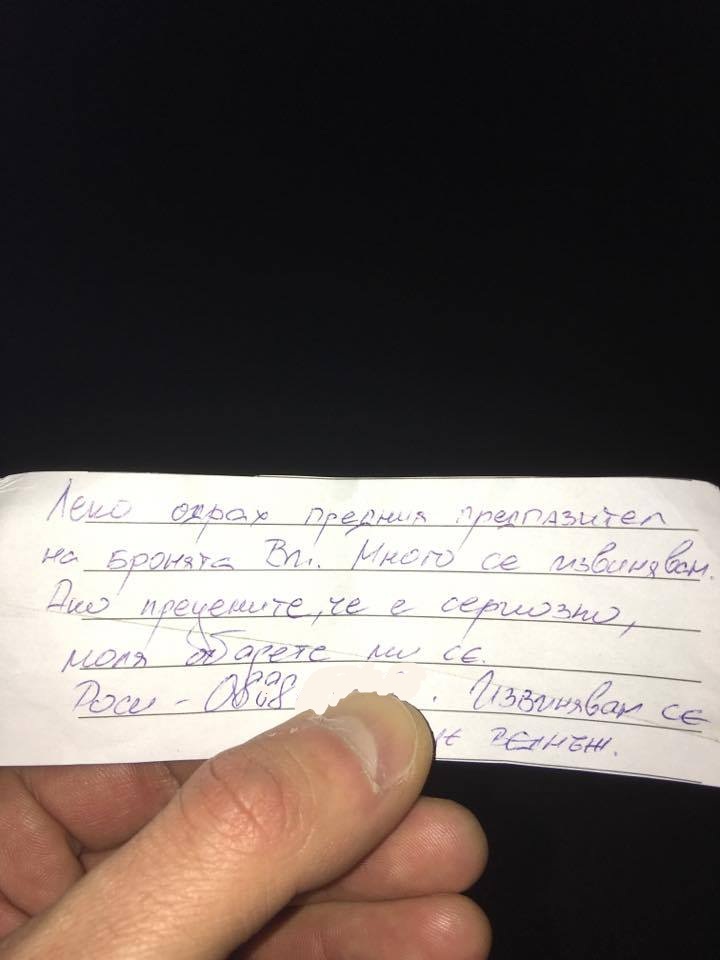 Леко одрах предния предпазител
на бронята Ви. Много се извинявам.
Ако прецените, че е сериозно,
моля обадете ми се.
Роси - 0888 . Извинявам се